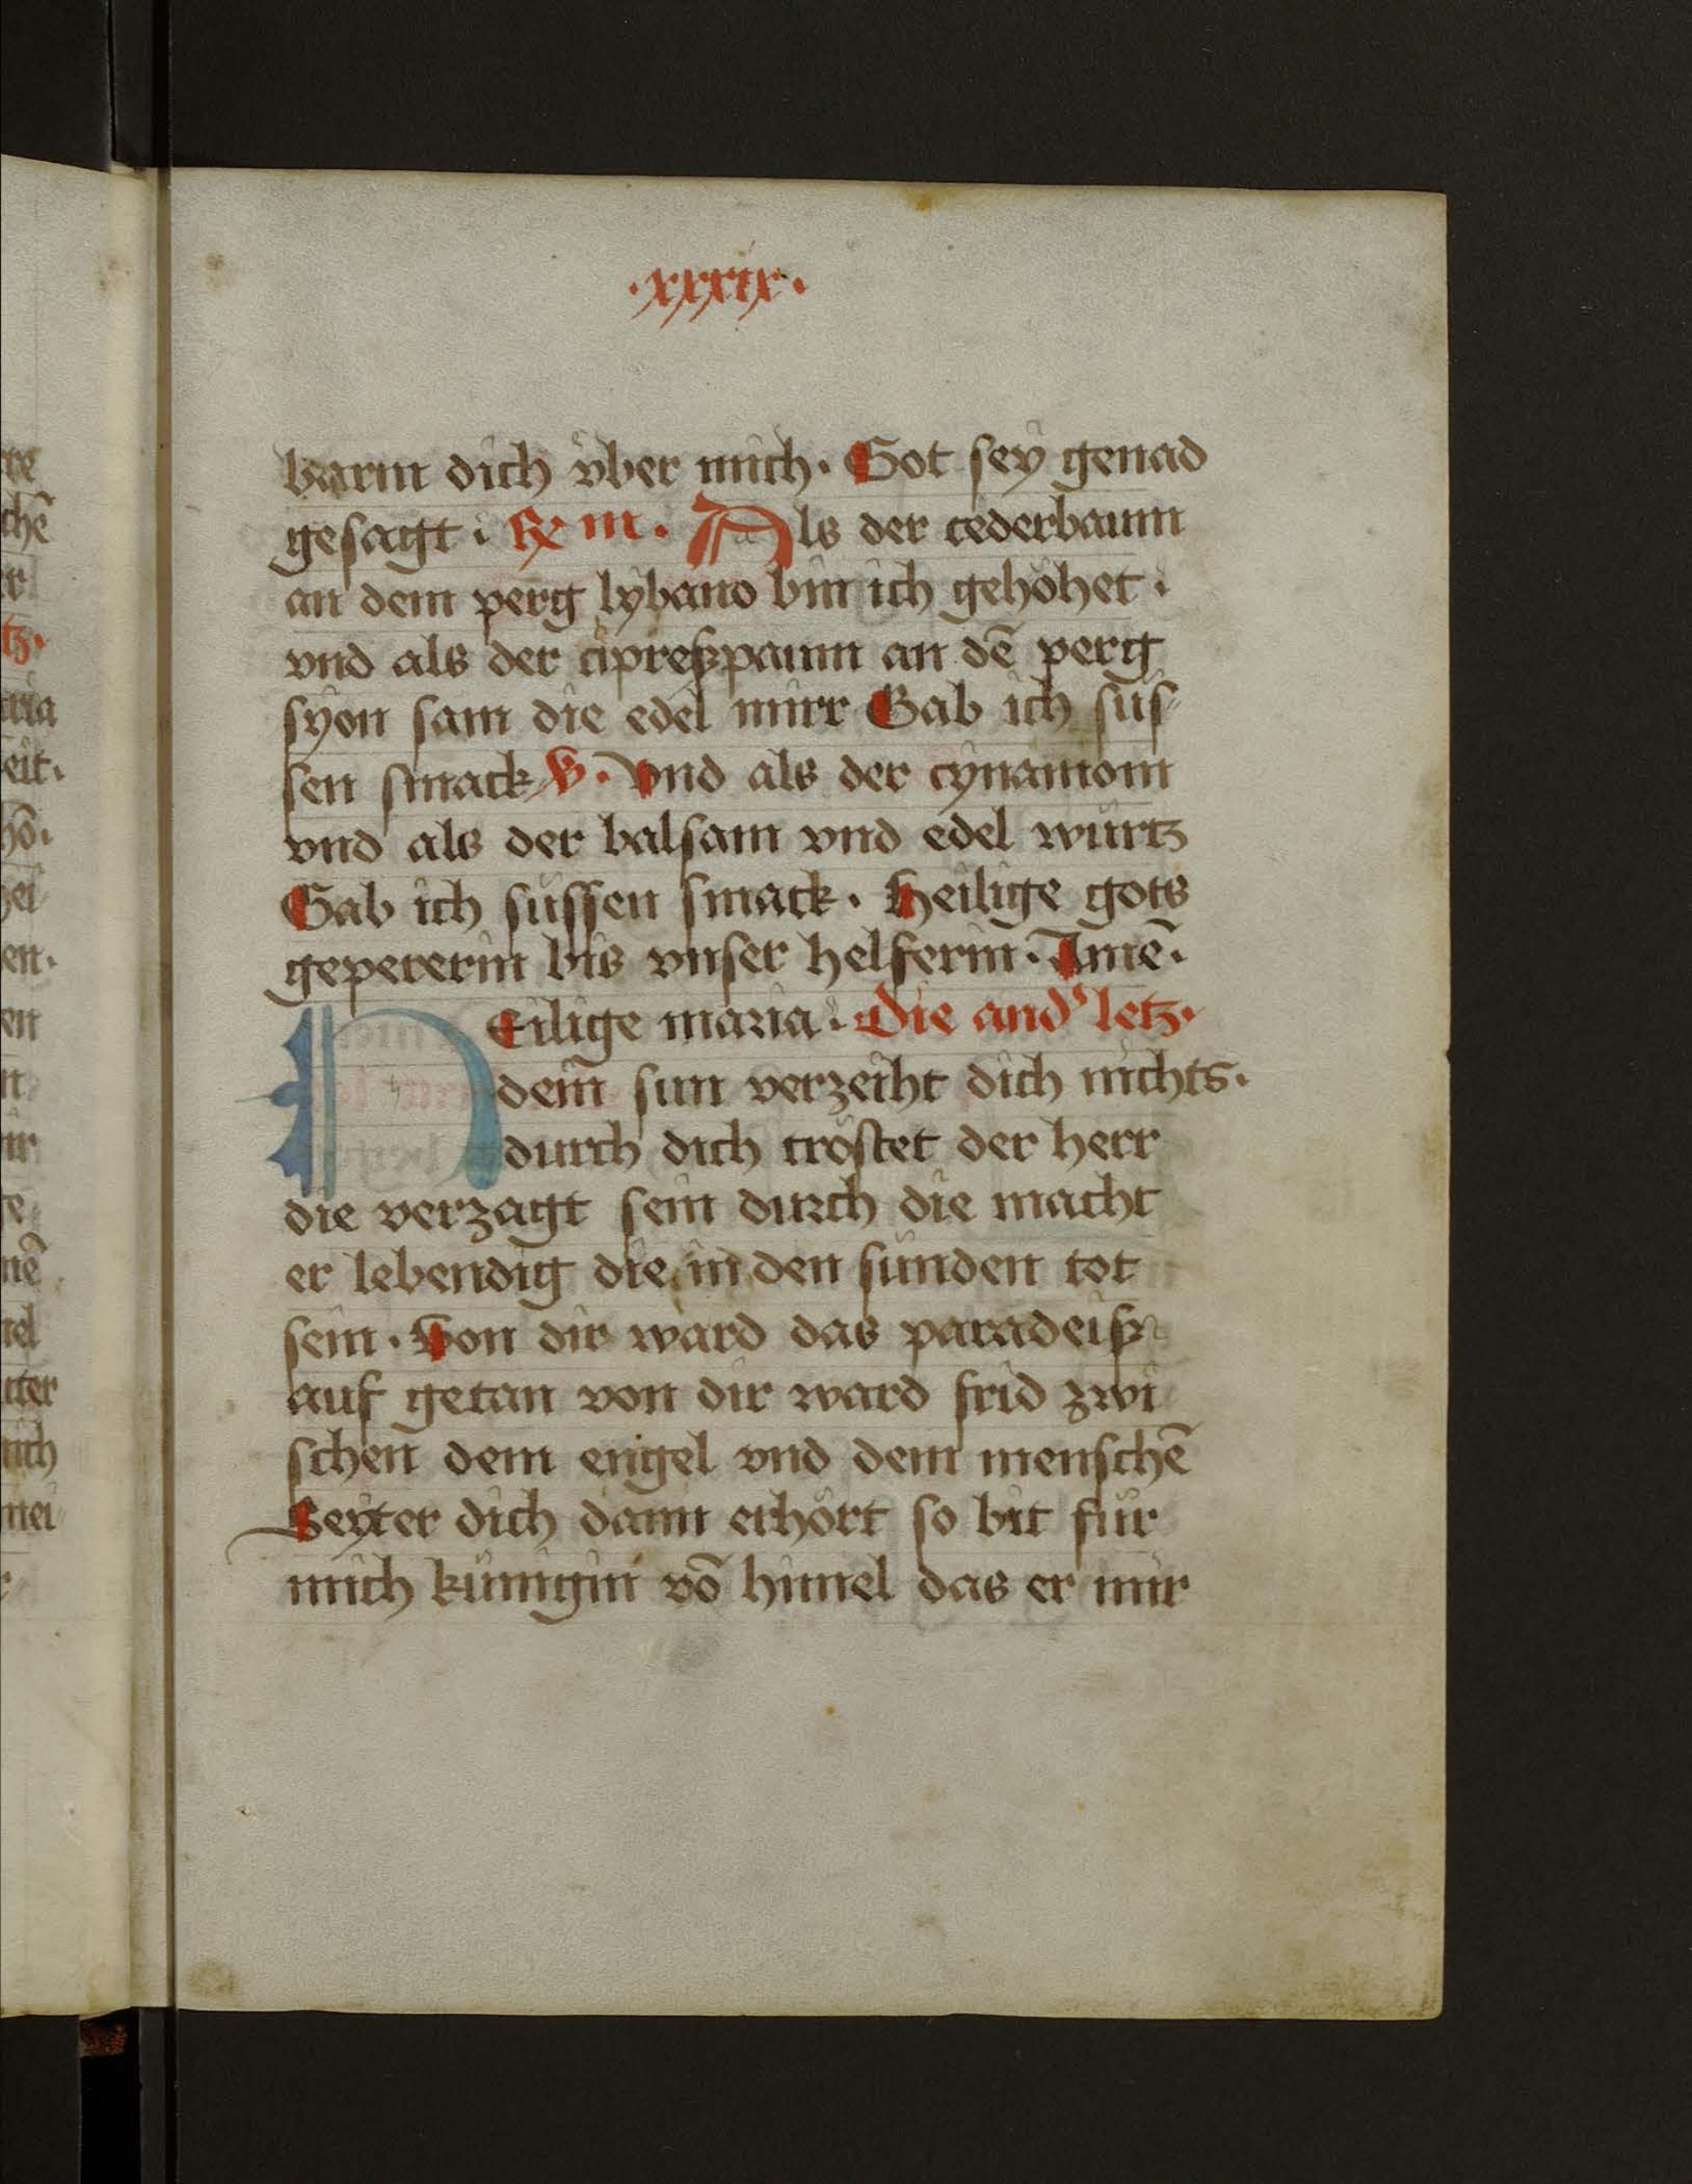 ·xxxix·
barm dich vber mich. Got sey genad
gesagt. ℞ m. Als der cederbaum
an dem perg lybano bin ich gehöhet.
vnd als der cipreßpaum an dē perg
syon sam die edel mirr Gab ich süs
sen smack ℣. Vnd als der cynamom
vnd als der balsam vnd edel würtz
Gab ich süssen smack. Heilige gots
gepererin bis vnser helferin. Amē.
Heilige maria. Die and' letz.
dein sun verzeiht dich nichts.
durch dich tröstet der herr
die verzagt sein durch die macht
er lebendig die in den sünden tot
sein. Von dir ward das paradeiß
auf getan von dir ward frid zwi
schen dem engel vnd dem menschē
Seyter dich dann erhört so bit für
mich künigin vō himel das er mir